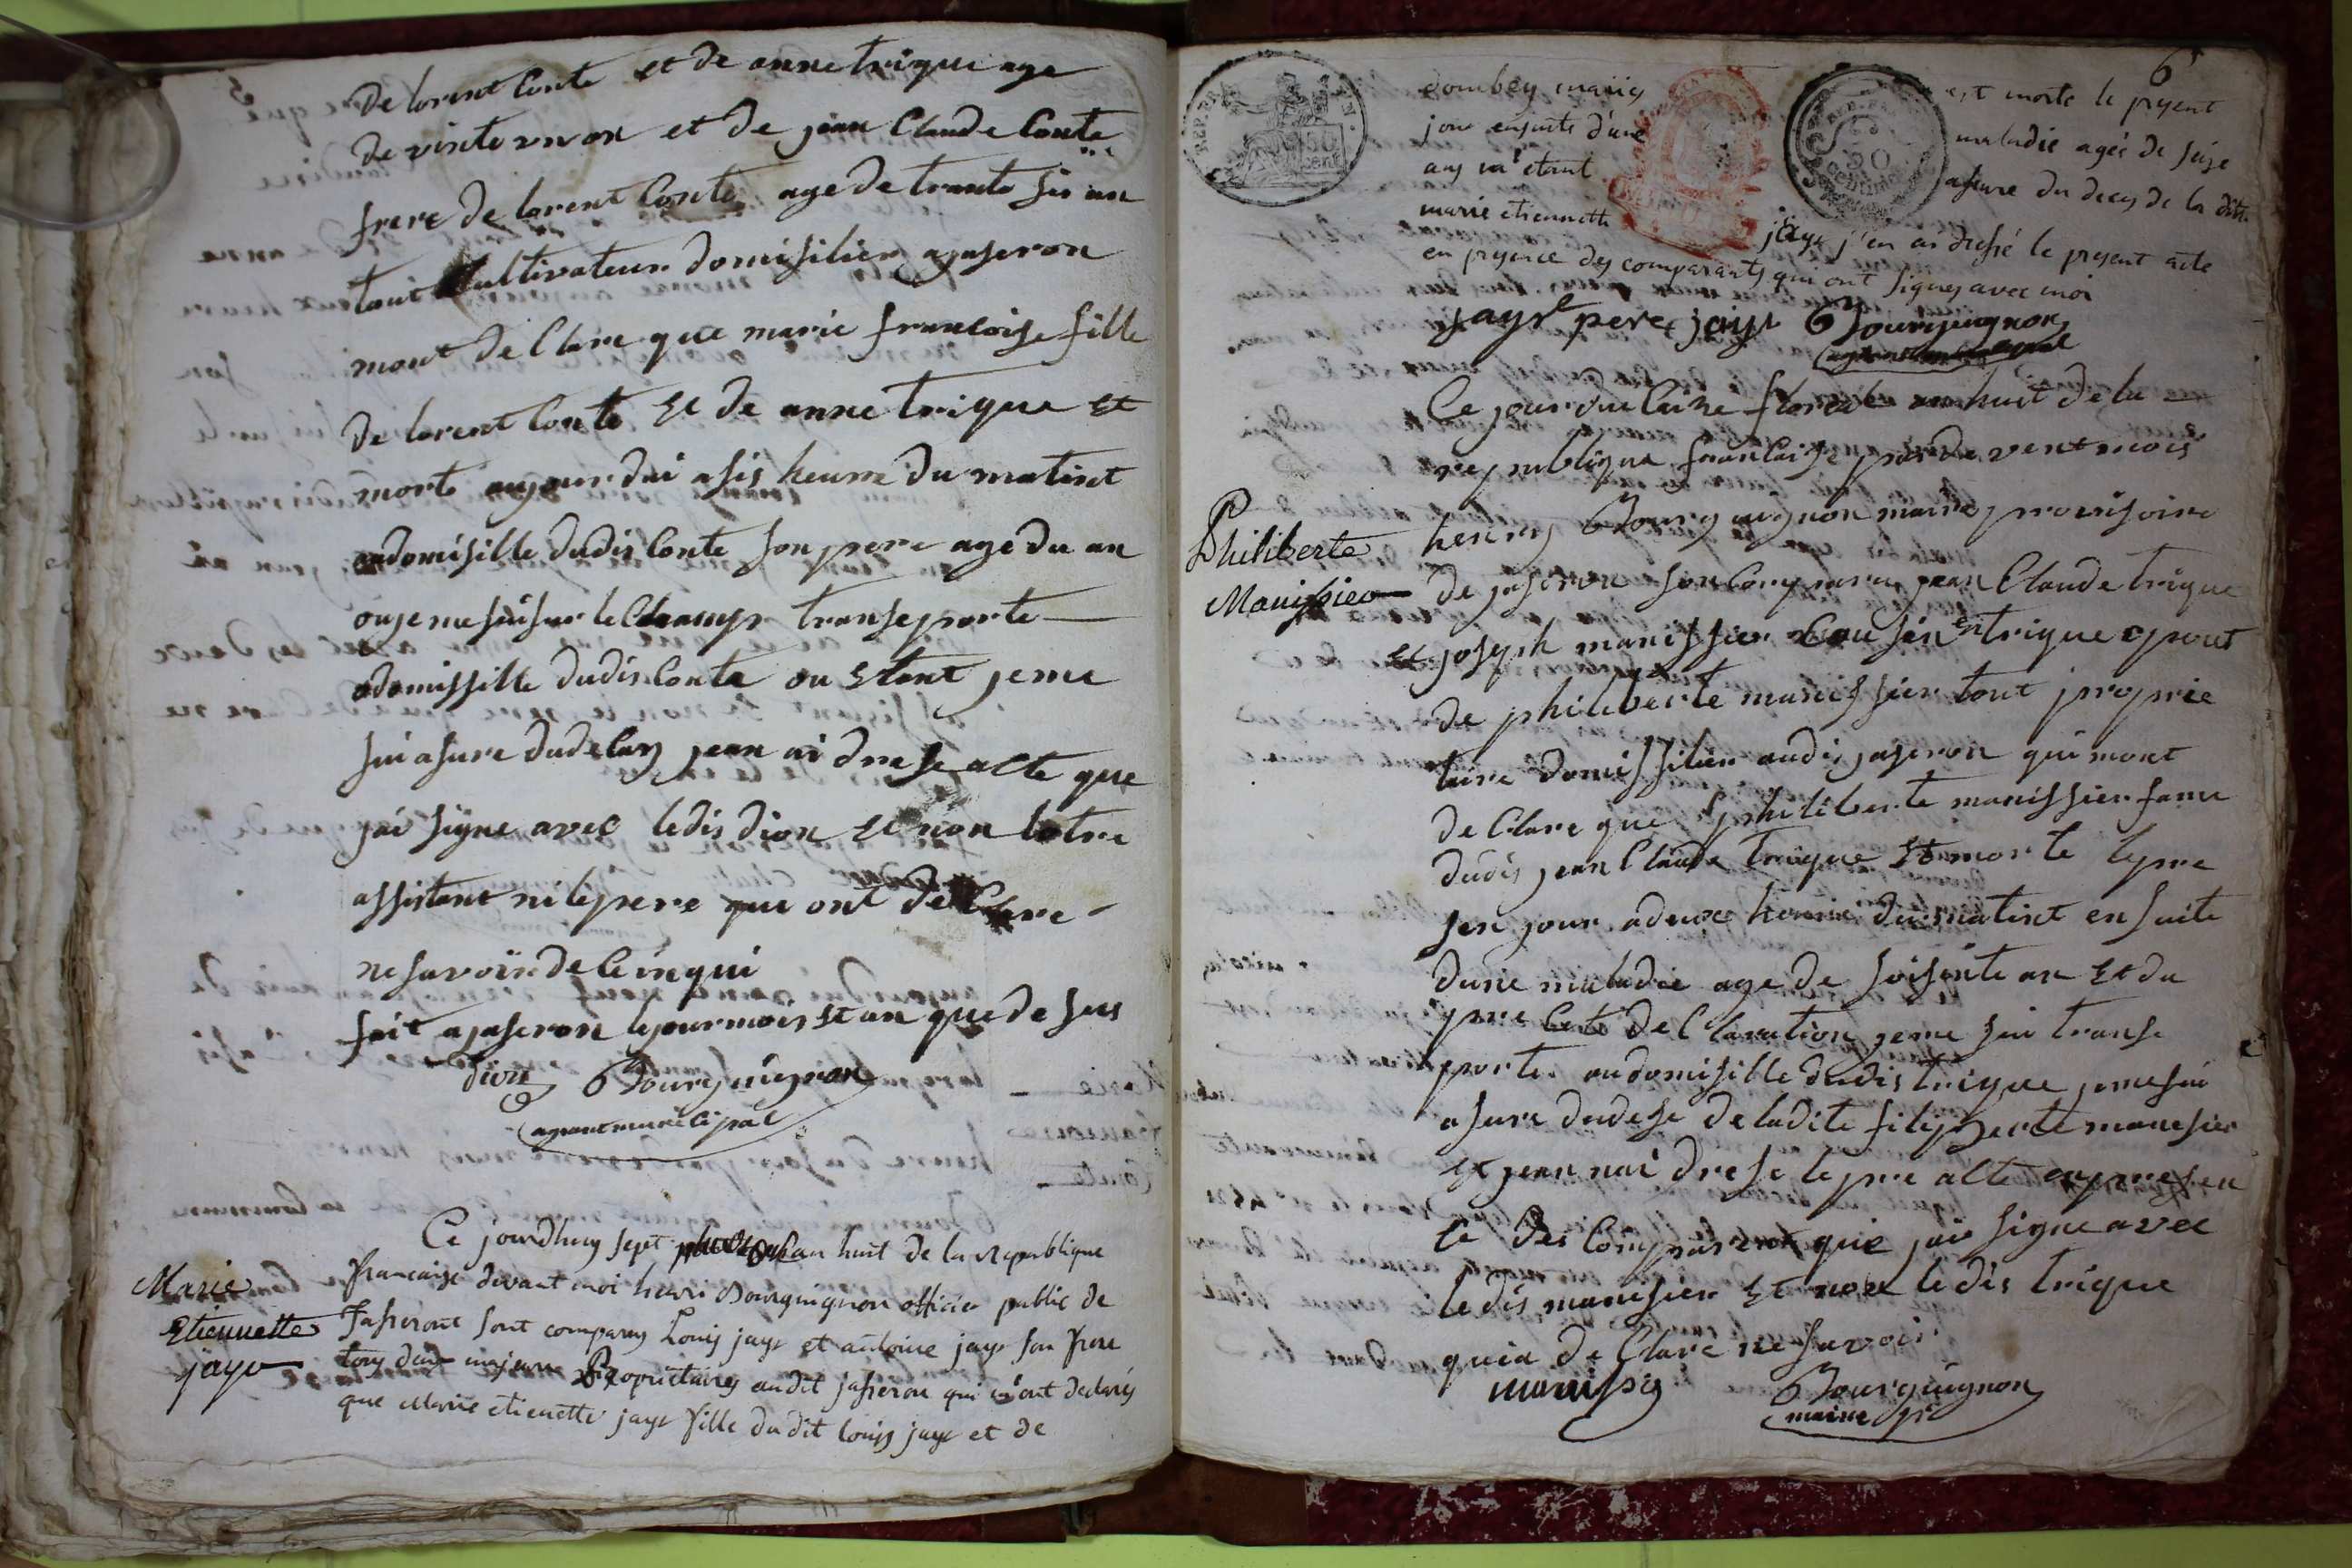 de lorent Conte et de anne trique age
de vinte un an et de jean Claude Conte
frere de lorent Conte age de trante sis an
tout Cultivateur domisilier a jaseron
mont de Clare que marie francoise fille
de lorent Conte et de anne trique et
morte aujour dui a sis heure du matint
audomisille dudis Conte son pere age du an
ou je me sui sur le Champs transeporte
adomissille dudis Conte ou etant je me
sui asure dudeces jean ai drese acte que
jai signe avec ledis dion et non lotre
assistant ni le pere qui ont de Clare
ne savoir de Ce inqui
fait a jaseron le jour mois et an que de sus
dion Bourguignon
agent municipal
Marie
Etiennette
jayr
Ce jourdhuy sept an huit de la republique
francaise devant moi henri Bourguignon officier public de
Jasseront sont comparus Louis jayr et antoine jayr son frere
tous deux majeurs Proprietaires audit jasseron qui m'ont declarés
que Marie etienette jayr fille dudit louis jayr et de
6
REP. FRA
50
cent
50
centimes
dombey maries est morte le present
jour ensuite d'une maladie agée de seize
ans m'etant assure du deces de la ditte
marie etiennette jayr j'en ai dressé le present acte
en presence des comparants qui ont signes avec moi
jayr pere jayr Bourguignon
agent municipal
Philiberte
Manissier
Ce jour floreal an huit de la
republique francaise par de vent mois
henry Bourguignon maire provisoire
de jaseron son Comparu jean Claude trique
et joseph manissier Cousin trique epout
de philiberte manissier tout proprie
taire domissilier audis jaseron qui mont
de Clare que philiberte manissier fame
dudis jean Claude trique et morte le pre
sen jour a deux heure du matint en suite
dune maladie age de soisente an et du
pre Cete de Claration je me sui transe
porte audomisille dudis trique je me sui
asure dudese de ladite filiberte manesier
et jean nai drese le pre acte enpresen
ce des Comparent que jai signe avec
ledis manesier et non ledis trique
quia de Clare ne savoir
manissier Bourguignon
maire pr